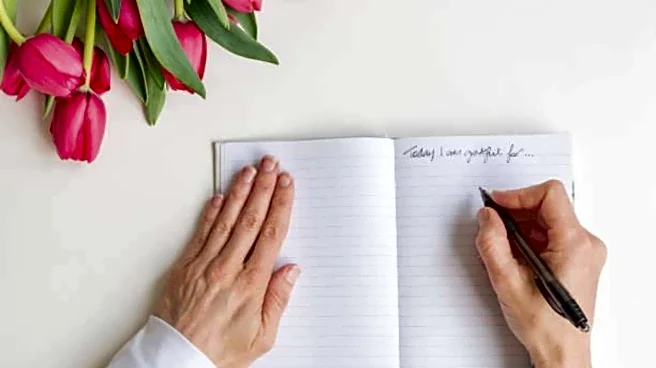 Today I am grateful for...